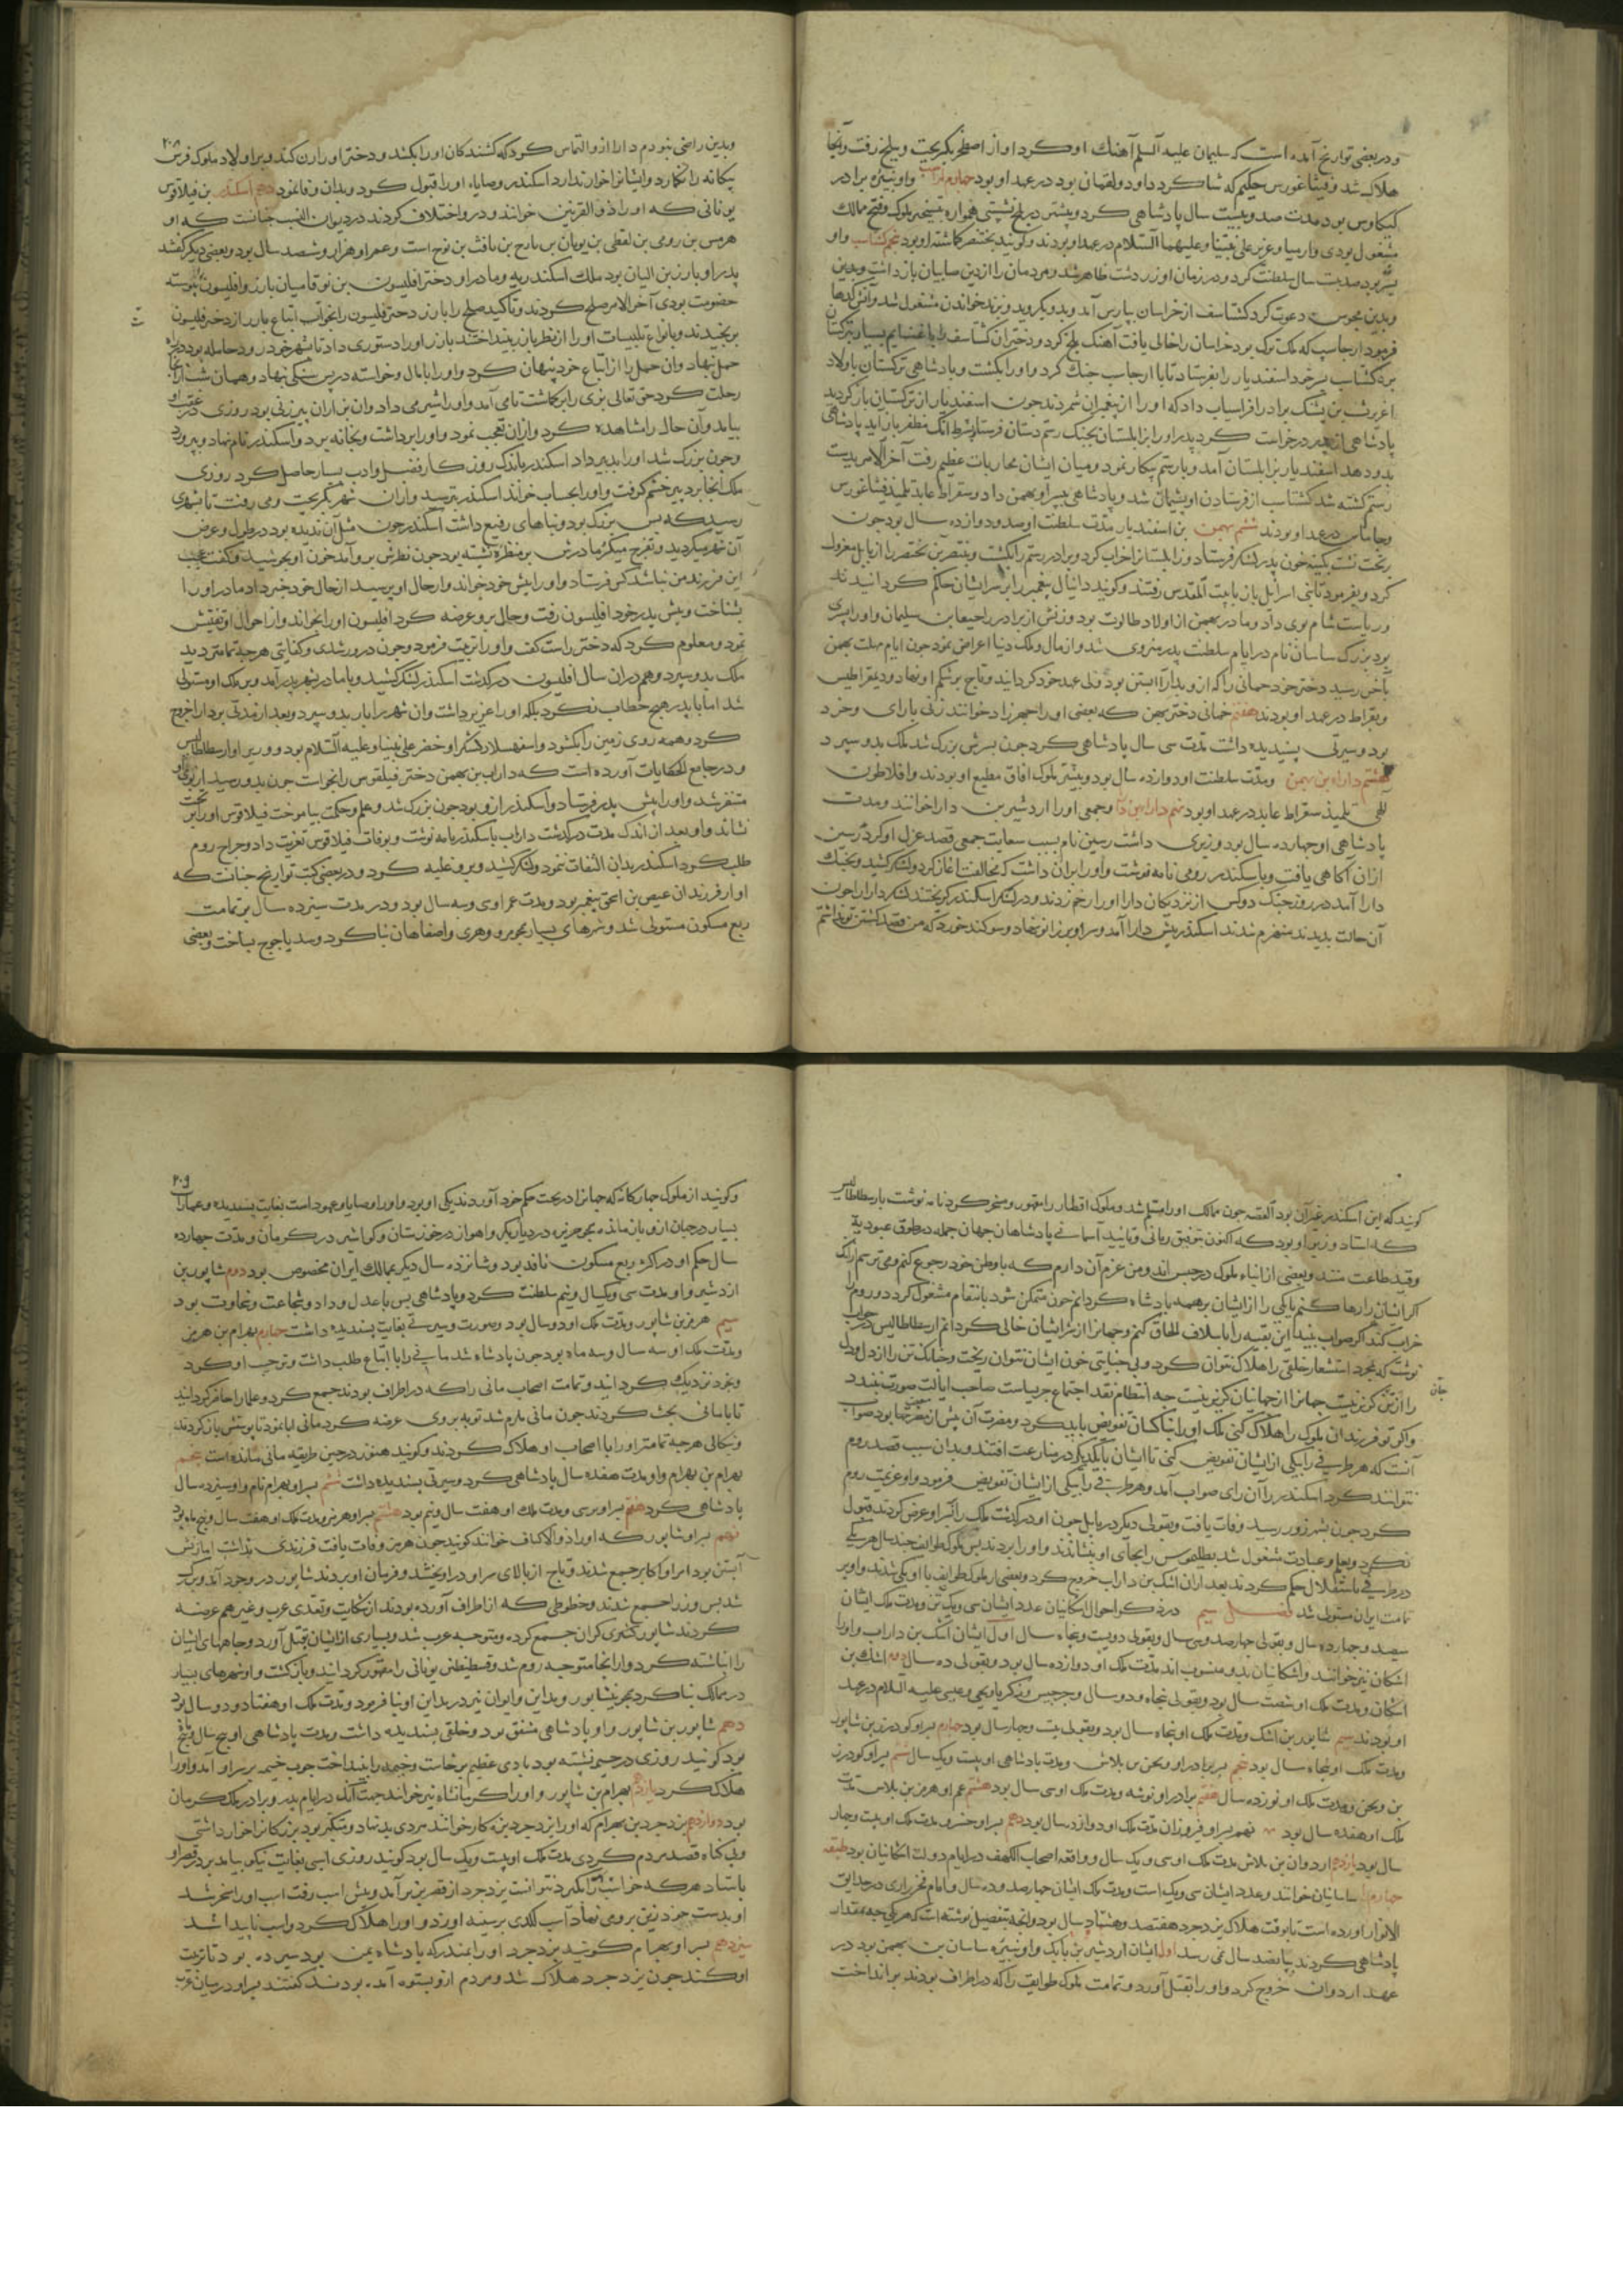 و در بعضی تواریخ آمده است که سلیمان علیه السلم آهنك او کرد او از اصطخر بکریخت و ببلخ رفت و آنجا
هلاك شد و فیثاغورس حکیم که شاکرد داود و لقمان بود در عهد او بود چهارم لهراسب و او نبیره برادر
کیکاوس بود مدت صد و بیست سال پادشاهی کرد و بیشتر در بلخ نشستی همواره بتسخیر ملوك و فتح ممالك
مشغول بودی و ارمیا و عزیر علی نبینا و علیهما السلام در عهد او بودند و کویند بختنصر کماشته او بود پنجم کشتاسب و او
پسر او بود صد و بیست سال سلطنت کرد و در زمان او زردشت ظاهر شد و مردمان را از دین صابیان باز داشت و بدین
و بدین مجوس دعوت کرد کشتاسف از خراسان بپارس آمد و بدو بکروید و بزند خواندن مشغول شد و آتش کدها
فرمود ارجاسپ که ملك ترك بود خراسان را خالی یافت آهنك بلخ کرد و دختران کشتاسف را با غنایم بسیار بترکستان
برد کشتاسب پسر خود اسفندیار را بفرستاد تا با ارجاسب جنك کرد و او را بکشت و پادشاهی ترکستان باولاد
اغریرث بن پشنك برادر افراسیاب داد که او را از پیغمبران شمردند چون اسفندیار از ترکستان باز کردید
پادشاهی از پدر درخواست کرد پدر او را بزابلستان بجنك رستم دستان فرستاد بشرط آنك مظفر باز آید پادشاهی
بدو دهد اسفندیار بزابلستان آمد و با رستم پیکار نمود و میان ایشان محاربات عظیم رفت آخر الامر بدست
رستم کشته شد کشتاسب از فرستادن او پشیمان شد و پادشاهی بپسر او بهمن داد و سقراط عابد تلمیذ فیثاغورس
و جاماس در عهد او بودند ششم بهمن بن اسفندیار مدت سلطنت او صد و دوازده سال بود چون
بر تخت نشست بکینه خون پدر لشکر فرستاد و زابلستان را خراب کرد و برادر رستم را بکشت و بختنصر بن بختنصر را از بابل معزول
کرد و بفرمود تا بنی اسرائیل باز با بیت المقدس رفتند و کویند دانیال پیغمبر را بر سر ایشان حاکم کردانیدند
و ریاست شام بوی داد و مادر بهمن از اولاد طالوت بود و زنش از برادر راحیعا بن سلیمان و او را پسری
بود بزرك ساسان نام در ایام سلطنت پدر منزوی شد و از مال و ملك دنیا اعراض نمود چون ایام مهلت بهمن
بآخر رسید دختر خود خمانی را که از و بدارا آبستن بود ولی عهد خود کردانید و تاج بر شکم او نهاد و دیمقراطیس
و بقراط در عهد او بودند هفتم خمانی دختر بهمن که بعضی او را چهرزاد خوانند زنی با رای و خرد
بود و سیرتی پسندیده داشت مدت سی سال پادشاهی کرد چون پسرش بزرك شد ملك بدو سپرد
هشتم داراء بن بهمن و مدت سلطنت او دوازده سال بود و بیشتر ملوك آفاق مطیع او بودند و افلاطون
الهی تلمیذ سقراط عابد در عهد او بود نهم دارا بن دارا و جمعی او را اردشیر بن دارا خوانند و مدت
پادشاهی او چهارده سال بود وزیری داشت رسین نام بسبب سعایت جمعی قصد عزل او کرد رسین
از آن آکاهی یافت و با سکندر رومی نامه نوشت و او را بر آن داشت که مخالفت آغاز کرد و لشکر کشید و بجنك
دارا آمد در روز جنك دو کس از نزدیکان دارا او را زخم زدند و در لشکر اسکندر کریختند لشکر دارا را چون
آن حالت بدیدند منهزم شدند اسکندر پیش دارا آمد و سر او بر زانو نهاد و سوکند خورد که من قصد کشتن تو نداشتم
۲۰۸
و بدین راضی نبودم دارا از و التماس کرد که کشندکان او را بکشد و دختر او را زن کند و بر اولاد ملوك فرس
بیکانه را نکمارد و ایشان را خوار ندارد اسکندر وصایاء او را قبول کرد و بدان وفا نمود دهم اسکندر بن فیلاقوس
یونانی که او را ذو القرنین خوانند و در و اختلاف کردند در دیوان النسب چنانست که او
هرمس بن رومی بن لفطی بن یونان بن تارح بن یافث بن نوح است و عمر او هزار و ششصد سال بود و بعضی دیکر کفتند
پدر او بارز بن الیان بود ملك اسکندریه و مادر او دختر افلیسون بن نوقا میان بارز و افلیسون پیوسته
خصومت بودی آخر الامر صلح کردند و تأکید صلح را بارز دختر افلیسون را بخواست اتباع بارز از دختر فلیسون
برنجیدند و بانواع تلبیسات او را از نظر بارز بینداختند بارز او را دستوری داد تا بشهر خود رود حامله بود در راه
حمل نهاد و آن حمل را از اتباع خود پنهان کرد و او را با مال و خواسته در پس سنکی نهاد و همان شب از آنجا
رحلت کرد حق تعالی بزی را بر کماشت تا می آمد و او را شیر می داد و آن بز از آن پیر زنی بود روزی در عقب او
بیامد و آن حال را مشاهده کرد و از آن تعجب نمود و او را برداشت و بخانه برد و اسکندر نام نهاد و بپرورد
و چون بزرك شد او را بدبیر داد اسکندر باندك روزکار فضل و ادب بسیار حاصل کرد روزی
ملك آنجا بر دبیر خشم کرفت و او را بحساب خواند اسکندر بترسید و از آن شهر بکریخت و می رفت تا بشهری
رسید که بس بزرك بود و بناهای رفیع داشت اسکندر چون مثل آن ندیده بود در طول و عرض
آن شهر میکردید و تفرج میکرد مادرش بر منظره نشسته بود چون نظرش بر و آمد خون او بجوشید و کفت عجب
این فرزند من نباشد کس فرستاد و او را پیش خود خواند و از حال او پرسید از حال خود خبر داد مادر او را
بشناخت و پیش پدر خود افلیسون رفت و حال بر و عرضه کرد افلیسون او را بخواند و از احوال او تفتیش
نمود و معلوم کرد که دختر راست کفت و او را تربیت فرمود و چون در و رشدی و کفایتی هر چه تمامتر دید
ملك بدو سپرد و هم در آن سال افلیسون در کذشت اسکندر لشکر کشید و با مادر بشهر پدر آمد و بر ملك او مستولی
شد اما با پدر هیچ خطاب نکرد بلکه او را عزیز داشت و آن شهر را باز بدو سپرد و بعد از مدتی بر دارا خروج
کرد و همه روی زمین را بکشود و اسفهسلار لشکر او خضر علی نبینا و علیه السلام بود و وزیر او ارسطاطالیس
و در جامع الحکایات آورده است که داراب بن بهمن دختر فیلقوس را بخواست چون بدو رسید از بوی او
متنفر شد و او را پیش پدر فرستاد و اسکندر از و بود چون بزرك شد و علم و حکمت بیاموخت فیلاقوس او را بر تخت
نشاند و او بعد از اندك مدت در کذشت داراب باسکندر نامه نوشت و بوفات فیلاقوس تعزیت داد و خراج روم
طلب کرد اسکندر بدان التفات ننمود و لشکر کشید و بر و غلبه کرد و در بعضی کتب تواریخ چنانست که
او از فرزندان عیص بن اسحق پیغمبر بود و مدت عمر او سی و سه سال بود و در مدت سیزده سال بر تمامت
ربع مسکون مستولی شد و شهرهای بسیار بجو مرو و هری و اصفاهان بنا کرد و سد یاجوج بساخت و بعضی
کویند که این اسکندر غیر آن بود القصه چون ممالك او را مسلم شد و ملوك اقطار را مقهور و مسخر کرد نامه نوشت بارسطاطالیس
که استاد و زیر او بود که اکنون بتوفیق ربانی و تایید آسمانی پادشاهان جهان جمله در طوق عبودیة
و قید طاعت منند و بعضی از ابناء ملوك در حبس اند و من عزم آن دارم که با وطن خود رجوع کنم و می ترسم از آنك
اکر ایشان را رها کنم یا یکی را از ایشان بر همه پادشاه کردانم چون متمکن شود بانتقام مشغول کردد و روم را
خراب کند اکر صواب بیند این بقیه را باسلاف الحاق کنم و جهان را از شر ایشان خالی کردانم ارسطاطالیس در جواب
نوشت که بمجرد استشعار خلقی را هلاك نتوان کرد و بی جنایتی خون ایشان نتوان ریخت و چنانك تن را از دل و دل
را از تن کزیر نیست جهان را از جهانیان کزیر نیست چه انتظام عقد اجتماع جز بریاست صاحب ایالت صورت نبندد
و اکر تو فرزندان ملوك را هلاك کنی ملك او را بناکسان تفویض باید کرد و مضرت آن بیش از منفعت بود صواب
آنست که هر طرفی را بیکی از ایشان تفویض کنی تا ایشان با یکدیکر در منازعت افتند و بدان سبب قصد روم
نتوانند کرد اسکندر را آن رای صواب آمد و هر طرفی را بیکی از ایشان تفویض فرمود و او عزیمت روم
کرد چون بشهر زور رسید وفات یافت و بقولی دیکر در بابل چون او در کذشت ملك را بر پسر او عرض کردند قبول
نکرد و بعلم و عبادت مشغول شد بطلیموس را بجای او بنشاندند و او را بردند پس ملوك طوایف چند سال هر یکی
در طرفی باستقلال حکم کردند بعد از آن اشك بن داراب خروج کرد و بعضی از ملوك طوایف با او یکی شدند و او بر
تمامت ایران مستولی شد فصل سیم در ذکر احوال اشکانیان عدد ایشان سی و یك تن و مدت ملك ایشان
سیصد و چهارده سال و بقولی چهار صد و سی سال و بقولی دویست و پنجاه سال اول ایشان اشك بن داراب و او را
اشکان نیز خوانند و اشکانیان بدو منسوب اند مدت ملك او دوازده سال بود و بقولی ده سال دوم اشك بن
اشکان و مدت ملك او شصت سال بود و بقولی پنجاه و دو سال و جرجیس و زکریا و یحیی و عیسی علیه السلام در عهد
او بودند سیم شاپور بن اشك و مدت ملك او پنجاه سال بود و بقولی بیست و چهار سال بود چهارم پسر او کودرز بن شاپور
و مدت ملك او پنجاه سال بود پنجم برادر او و بحن بن بلاش و مدت پادشاهی او بیست و یك سال ششم پسر او کودرز
بن ویجن و مدت ملك او نوزده سال هفتم برادر او نوشه و مدت ملك او سی سال بود هشتم عم او هرمز بن بلاش مدت
ملك او هفده سال بود نهم پسر او فیروزان مدت ملك او دوازده سال بود دهم پسر او خسرو مدت ملك او بیست و چهار
سال بود یازدهم اردوان بن بلاش مدت ملك او سی و یك سال و واقعه اصحاب الکهف در ایام دولت اشکانیان بود طبقه
چهارم ساسانیان خوانند و عدد ایشان سی و یك است و مدت ملك ایشان چهار صد و ده سال و امام فخر رازی در حدایق
الانوار آورده است تا بوقت هلاك یزدجرد هفتصد و هشتاد سال بود و آنچه بتفصیل نوشته است که هر یکی چه مقدار
پادشاهی کردند بپانصد سال نمی رسد اول ایشان اردشیر بن بابك و او نبیره ساسان بن بهمن بود در
عهد اردوان خروج کرد و او را بقتل آورد و تمامت ملوك طوایف را که در اطراف بودند بر انداخت
۲۰۹
و کویند از ملوك چهارکانه که جهان را در تحت حکم خود آوردند یکی او بود و او را وصایا و عهود است بغایت پسندیده و عمارات
بسیار در جهان از و باز مانده بجو جزیره در دیار بکر و اهواز در خوزستان و کواشیر در کرمان و مدت چهارده
سال حکم او در اکثر ربع مسکون نافذ بود و شانزده سال دیکر بممالك ایران مخصوص بود دوم شاپور بن
اردشیر و او مدت سی و یکسال و نیم سلطنت کرد و پادشاهی بس با عدل و داد و شجاعت و سخاوت بود
سیم هرمز بن شاپور و مدت ملك او دو سال بود و صورت و سیرتی بغایت پسندیده داشت چهارم بهرام بن هرمز
و مدت ملك او سه سال و سه ماه بود چون پادشاه شد مانی را با اتباع طلب داشت و ترحیب او کرد
و بخود نزدیك کردانید و تمامت اصحاب مانی را که در اطراف بودند جمع کرد و علما را حاضر کردانید
تا با مانی بحث کردند چون مانی ملزم شد توبه بر وی عرضه کرد مانی ابا نمود تا پوستش باز کردند
و نکالی هر چه تمامتر او را با اصحاب او هلاك کردند و کویند هنوز در چین طریقه مانی مانده است پنجم
بهرام بن بهرام و او مدت هفده سال پادشاهی کرد و سیرتی پسندیده داشت ششم پسر او بهرام نام و او سیزده سال
پادشاهی کرد هفتم پسر او نرسی و مدت ملك او هفت سال و نیم بود هشتم پسر او هرمز و مدت ملك او هفت سال و پنج ماه بود
نهم پسر او شاپور که او را ذو الاکتاف خوانند کویند چون هرمز وفات یافت فرزندی نداشت اما زنش
آبستن بود امرا و اکابر جمع شدند و تاج از بالای سر او در آویختند و فرمان او بردند شاپور در وجود آمد و بزرك
شد پس وزرا جمع شدند و خطوطی که از اطراف آورده بودند از شکایت و تعدی عرب و غیر هم عرضه
کردند شاپور لشکری کران جمع کرده و متوجه عرب شد و بسیاری از ایشان بقتل آورد و چاههای ایشان
را انباشته کرد و از آنجا متوجه روم شد و قسطنطین یونانی را مقهور کردانید و باز کشت و او شهرهای بسیار
در ممالك بنا کرد بجو نیشاپور و مداین و ایوان نیز در مداین او بنا فرمود و مدت ملك او هفتاد و دو سال بود
دهم شاپور بن شاپور و او پادشاهی مشفق بود و خلقی پسندیده داشت و مدت پادشاهی او پنج سال و پنج
بود کویند روزی در خیمه نشسته بود بادی عظیم برخاست و خیمه را بینداخت چوب خیمه بر سر او آمد و او را
هلاك کرد یازدهم بهرام بن شاپور و او را کرمانشاه نیز خوانند جهت آنك در ایام پدر و برادر ملك کرمان
بود دوازدهم یزدجرد بن بهرام که او را یزدجرد بزه کار خوانند مردی بد نهاد و متکبر بود بزرکان را خوار داشتی
و بی کناه قصد مردم کردی مدت ملك او بیست و یك سال بود کویند روزی اسبی بغایت نیکو بیامد بر در قصر او
باستاد هر که خواست تا بکیرد نتوانست یزدجرد از قصر بزیر آمد و پیش اسب رفت اسب او را مسخر شد
او بدست خود زین بر وی نهاد اسب لکدی بر سینه او زد و او را هلاك کرد و اسب ناپیدا شد
سیزدهم پسر او بهرام کویند یزدجرد او را بمنذر که پادشاه یمن بود سپرده بود تا تربیت
او کند چون یزدجرد هلاك شد و مردم از و بستوه آمده بودند کفتند پسر او در میان عرب